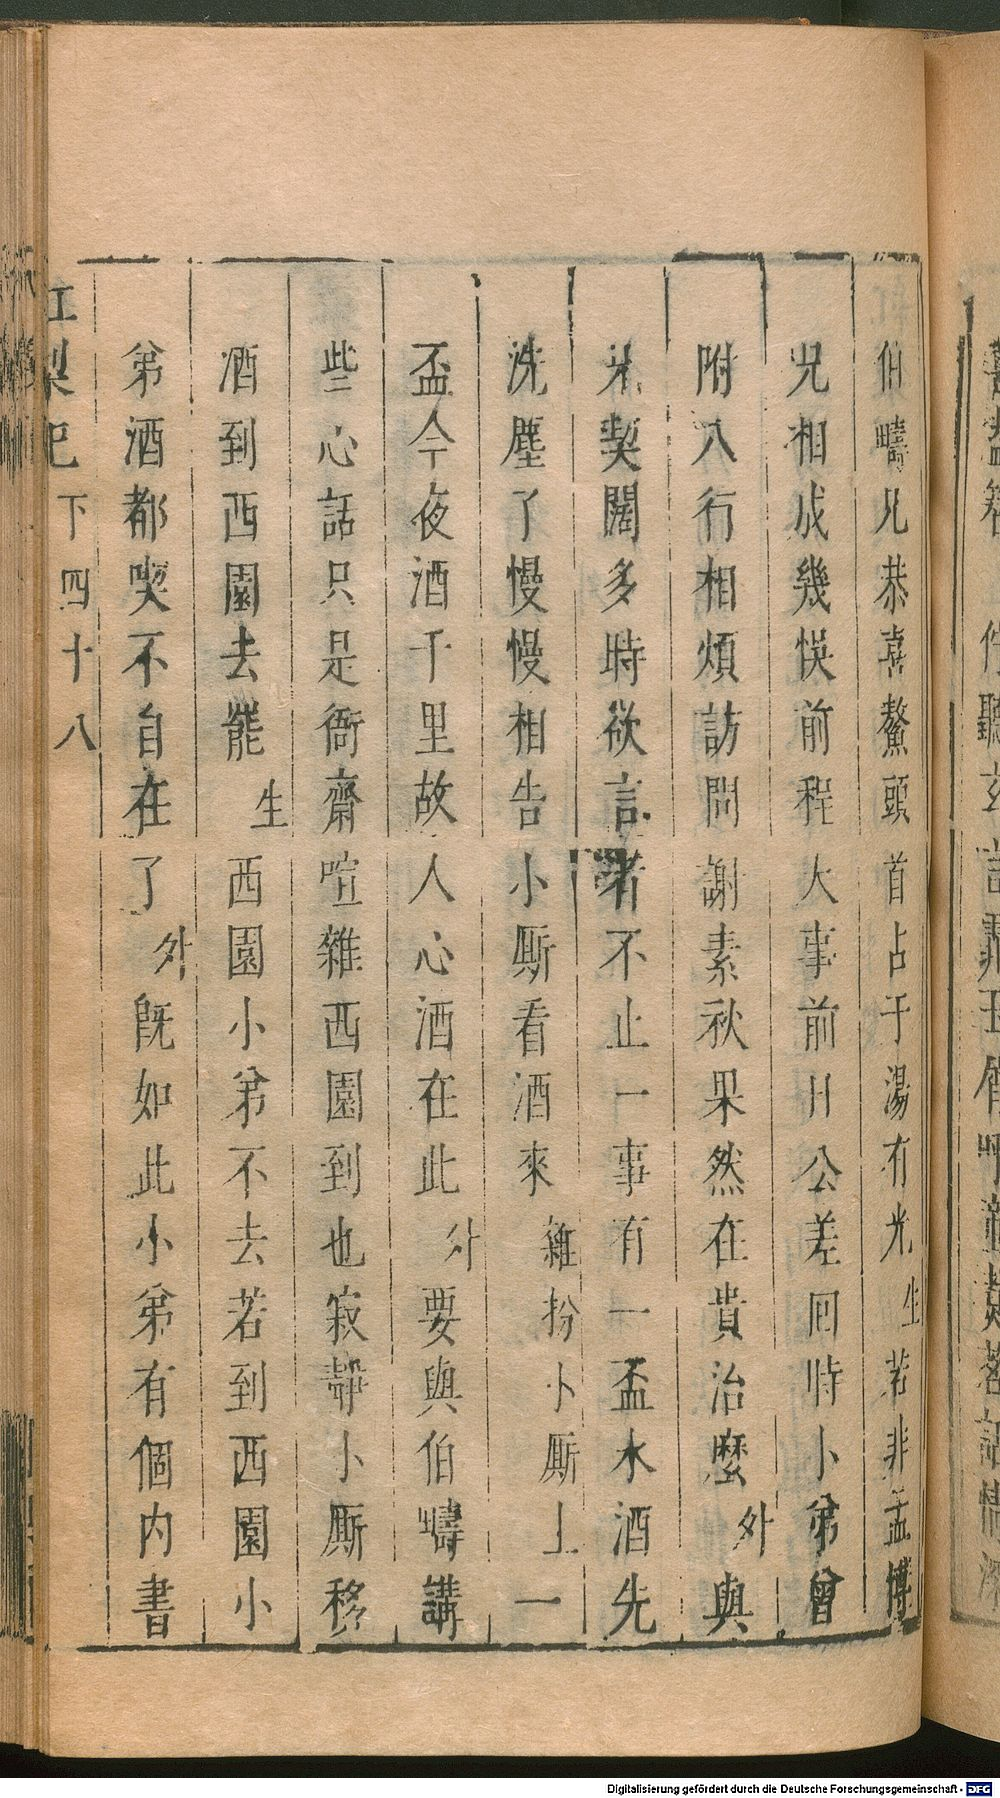 伯疇兄恭喜鰲頭首占于湯有光生若非孟博
兄相成幾悞前程大事前日公差回時小弟曾
附八行相煩訪問謝素秋果然在貴治麽外與
米契闊多時欲言者不止一事有一盃水酒先
洗塵了慢慢相告小厮看酒來雜扮小厮上一
盃今夜酒千里故人心酒在此外要與伯疇講
些心話只是衙齋喧雜西園到也寂靜小厮移
酒到西園去罷生西園小弟不去若到西園小
弟酒都喫不自在了外旣如此小弟有個内書
紅梨記 下四十八
Digitalisierung gefördert durch die Deutsche Forschungsgemeinschaft - DFG